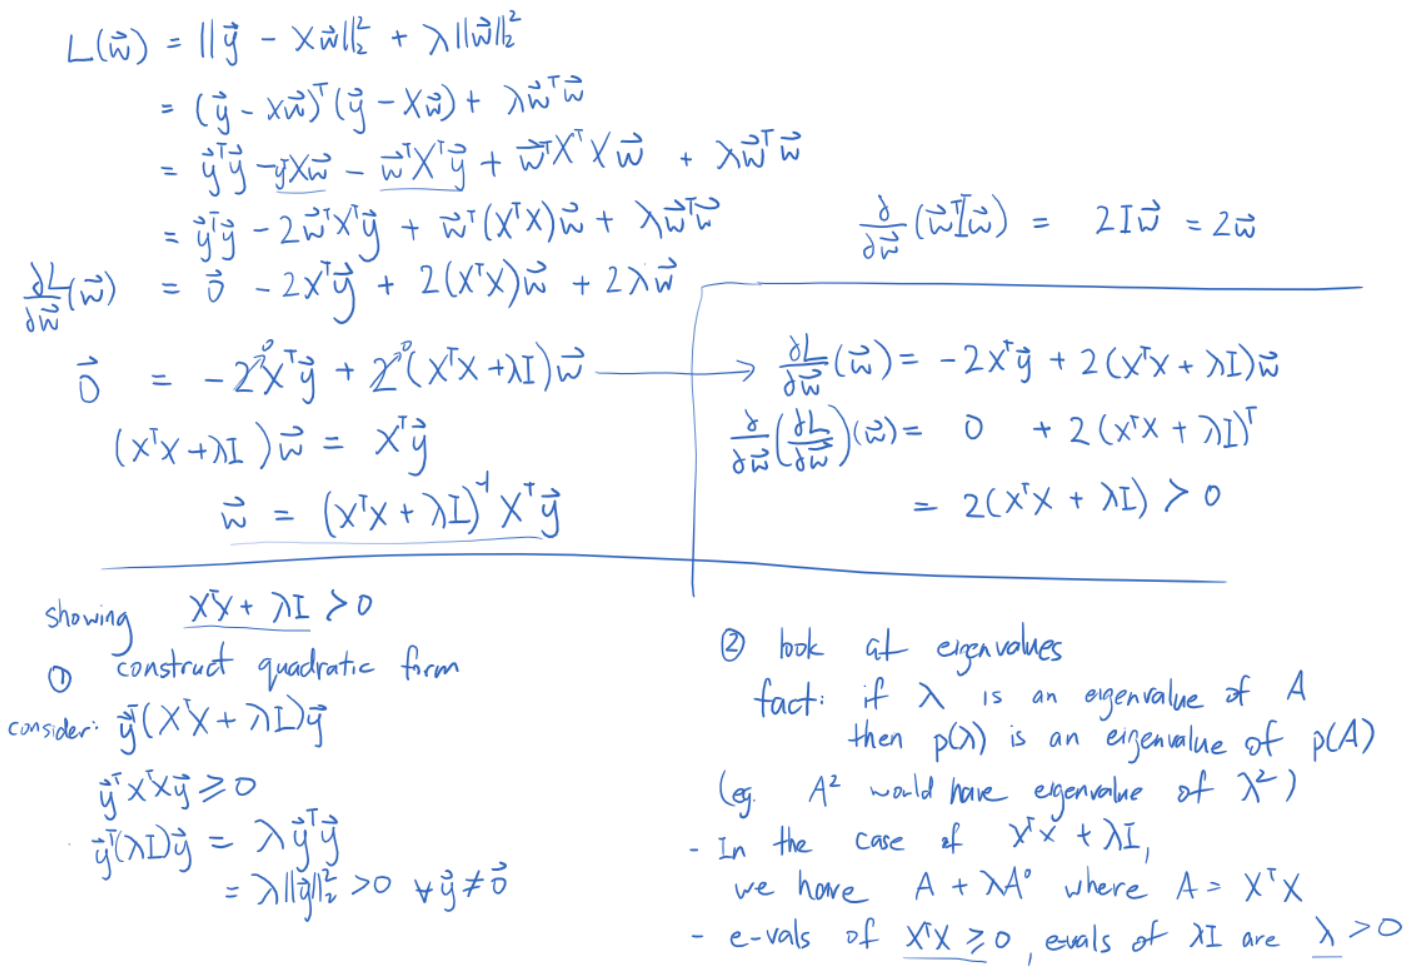 L(w⃗) = ||y⃗ - Xw⃗||₂² + λ||w⃗||₂²
= (y⃗ - Xw⃗)ᵀ(y⃗ - Xw⃗) + λw⃗ᵀw⃗
= y⃗ᵀy⃗ - yᵀXw⃗ - w⃗ᵀXᵀy⃗ + w⃗ᵀXᵀXw⃗ + λw⃗ᵀw⃗
= y⃗ᵀy⃗ - 2w⃗ᵀXᵀy⃗ + w⃗ᵀ(XᵀX)w⃗ + λw⃗ᵀw⃗
∂L/∂w⃗ (w⃗) = 0⃗ - 2Xᵀy⃗ + 2(XᵀX)w⃗ + 2λw⃗
0⃗ = -2Xᵀy⃗ + 2(XᵀX + λI)w⃗ →
(XᵀX + λI)w⃗ = Xᵀy⃗
w⃗ = (XᵀX + λI)⁻¹Xᵀy⃗
∂/∂w⃗ (w⃗ᵀIw⃗) = 2Iw⃗ = 2w⃗
∂L/∂w⃗ (w⃗) = -2Xᵀy⃗ + 2(XᵀX + λI)w⃗
∂/∂w⃗ (∂L/∂w⃗)(w⃗) = 0 + 2(XᵀX + λI)ᵀ
= 2(XᵀX + λI) > 0
showing XᵀX + λI > 0
① construct quadratic form
consider: y⃗ᵀ(XᵀX + λI)y⃗
y⃗ᵀXᵀXy⃗ ≥ 0
y⃗ᵀ(λI)y⃗ = λy⃗ᵀy⃗
= λ||y⃗||₂² > 0 ∀y⃗ ≠ 0⃗
② look at eigenvalues
fact: if λ is an eigenvalue of A
then p(λ) is an eigenvalue of p(A)
(eg. A² would have eigenvalue of λ²)
- In the case of XᵀX + λI,
we have A + λA⁰ where A = XᵀX
- e-vals of XᵀX ≥ 0, evals of λI are λ > 0